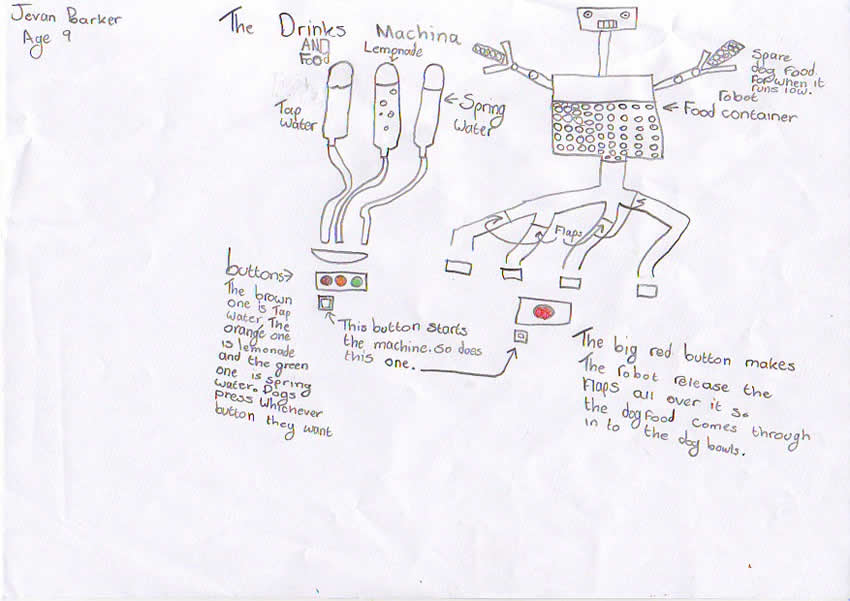 Jevan Barker
Age 9
The Drinks Machina
AND
Food
Lemonade
Tap
Water
Spring
Water
Spare
dog food
For when it
runs low.
robot
Food container
Flaps
buttons
The brown
one is Tap
water, The
orange one
is lemonade
and the green
one is spring
water. Dogs
press whichever
button they want
This button starts
the machine. So does
this one.
The big red button makes
The robot release the
Flaps all over it so
the dog food comes through
in to the dog bowls.